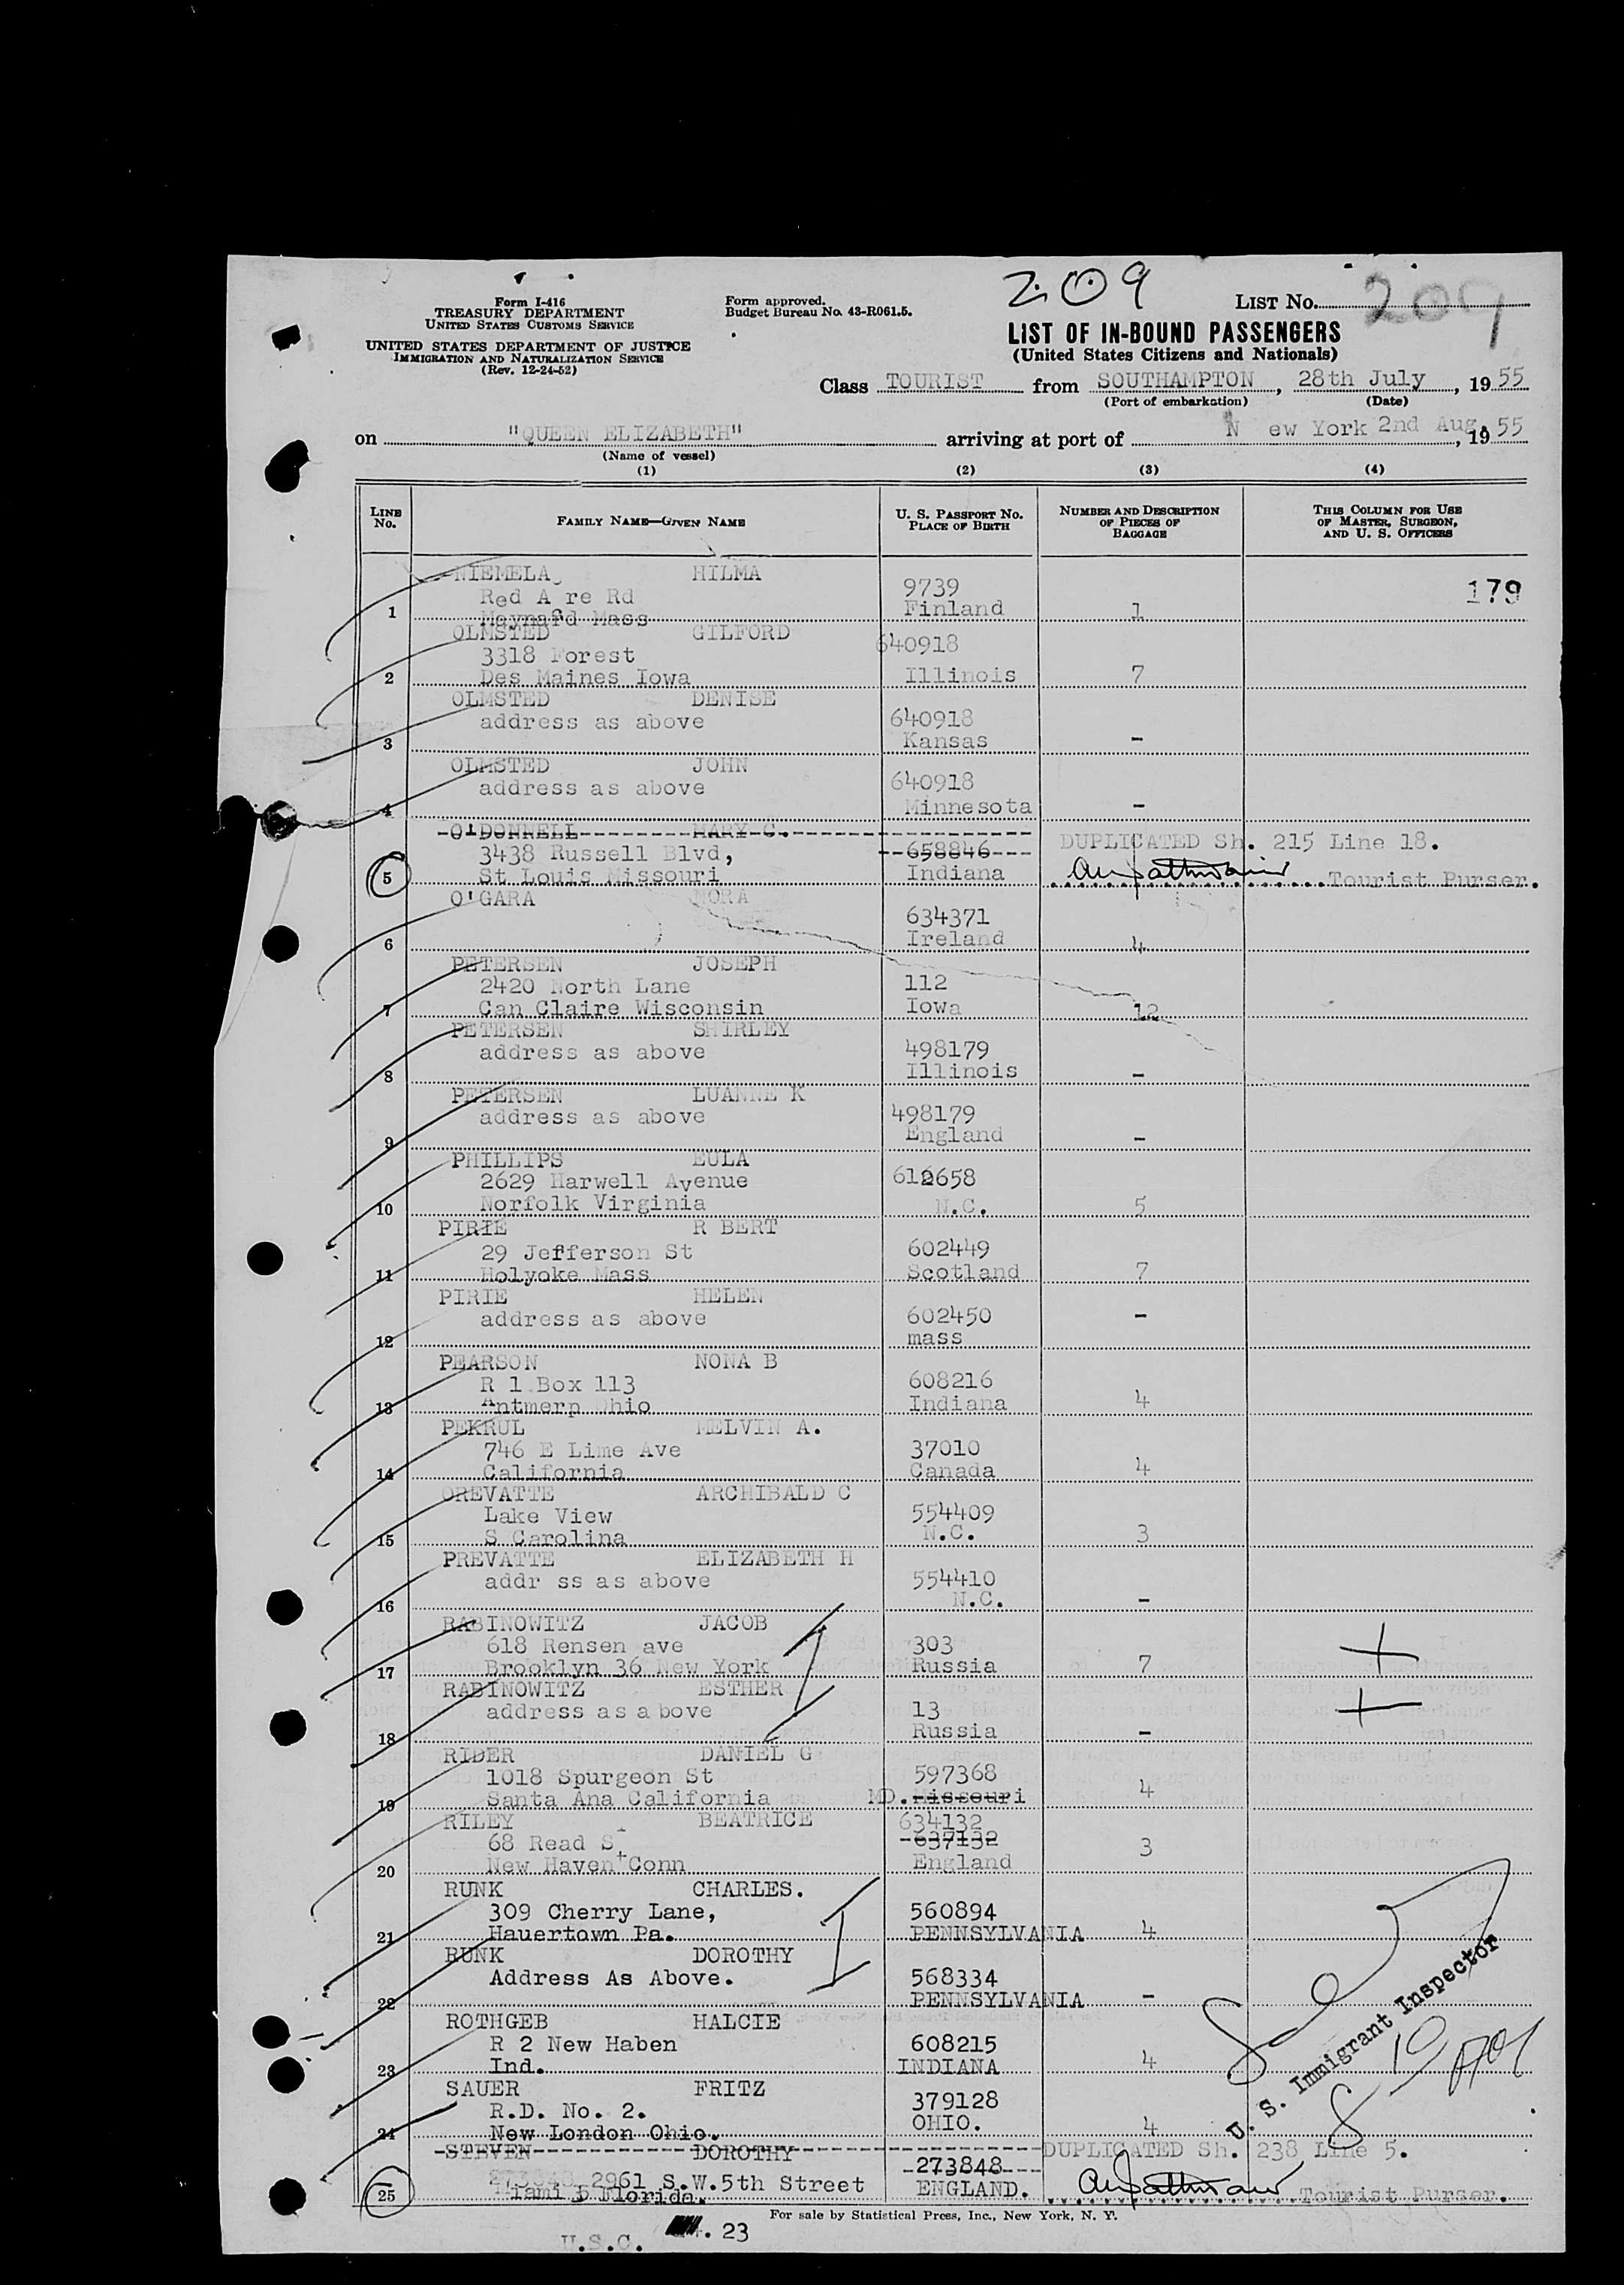 209
Form I-416
TREASURY DEPARTMENT
UNITED STATES CUSTOMS SERVICE
UNITED STATES DEPARTMENT OF JUSTICE
IMMIGRATION AND NATURALIZATION SERVICE
(Rev. 12-24-52)
Form approved.
Budget Bureau No. 43-R061.5.
LIST No. 209
LIST OF IN-BOUND PASSENGERS
(United States Citizens and Nationals)
Class TOURIST from SOUTHAMPTON, 28th July, 1955
(Port of embarkation) (Date)
on "QUEEN ELIZABETH" arriving at port of N ew York 2nd Aug., 1955
(Name of vessel)
(1) (2) (3) (4)
LINE No. FAMILY NAME—GIVEN NAME U. S. PASSPORT No. PLACE OF BIRTH NUMBER AND DESCRIPTION OF PIECES OF BAGGAGE THIS COLUMN FOR USE OF MASTER, SURGEON, AND U. S. OFFICERS
NIEMELA HILMA
Red A re Rd 9739 179
1 Maynard Mass Finland 1
OLMSTED GILFORD 640918
3318 Forest
2 Des Maines Iowa Illinois 7
OLMSTED DENISE
address as above 640918
3 Kansas -
OLMSTED JOHN
address as above 640918
4 Minnesota -
O'DONNELL MARY C. DUPLICATED Sh. 215 Line 18.
3438 Russell Blvd, 658846
5 St Louis Missouri Indiana Tourist Purser.
O'GARA NORA
634371
6 Ireland 4
PETERSEN JOSEPH
2420 North Lane 112
7 Can Claire Wisconsin Iowa 12
PETERSEN SHIRLEY
address as above 498179
8 Illinois -
PETERSEN LUANNE K
address as above 498179
9 England -
PHILLIPS EULA
2629 Harwell Avenue 612658
10 Norfolk Virginia N.C. 5
PIRIE R BERT
29 Jefferson St 602449
11 Holyoke Mass Scotland 7
PIRIE HELEN
address as above 602450 -
12 mass
PEARSON NONA B
R 1 Box 113 608216
13 Antmerp Ohio Indiana 4
PEKRUL MELVIN A.
746 E Lime Ave 37010
14 California Canada 4
OREVATTE ARCHIBALD C
Lake View 554409
15 S Carolina N.C. 3
PREVATTE ELIZABETH H
addr ss as above 554410
16 N.C. -
RABINOWITZ JACOB
618 Rensen ave 303
17 Brooklyn 36 New York Russia 7
RABINOWITZ ESTHER
address as a bove 13
18 Russia -
RIDER DANIEL G
1018 Spurgeon St 597368
19 Santa Ana California MD. Missouri 4
RILEY BEATRICE 634132
68 Read St 637132 3
20 New Haven Conn England
RUNK CHARLES.
309 Cherry Lane, 560894
21 Hauertown Pa. PENNSYLVANIA 4
RUNK DOROTHY
Address As Above. 568334
22 PENNSYLVANIA -
ROTHGEB HALCIE
R 2 New Haben 608215
23 Ind. INDIANA 4
SAUER FRITZ
R.D. No. 2. 379128
24 New London Ohio. OHIO. 4
U. S. Immigrant Inspector
STEVEN DOROTHY DUPLICATED Sh. 238 Line 5.
2961 S.W.5th Street 273848
25 Miami 5 Florida. ENGLAND. Tourist Purser.
For sale by Statistical Press, Inc., New York, N. Y.
U.S.C. 23